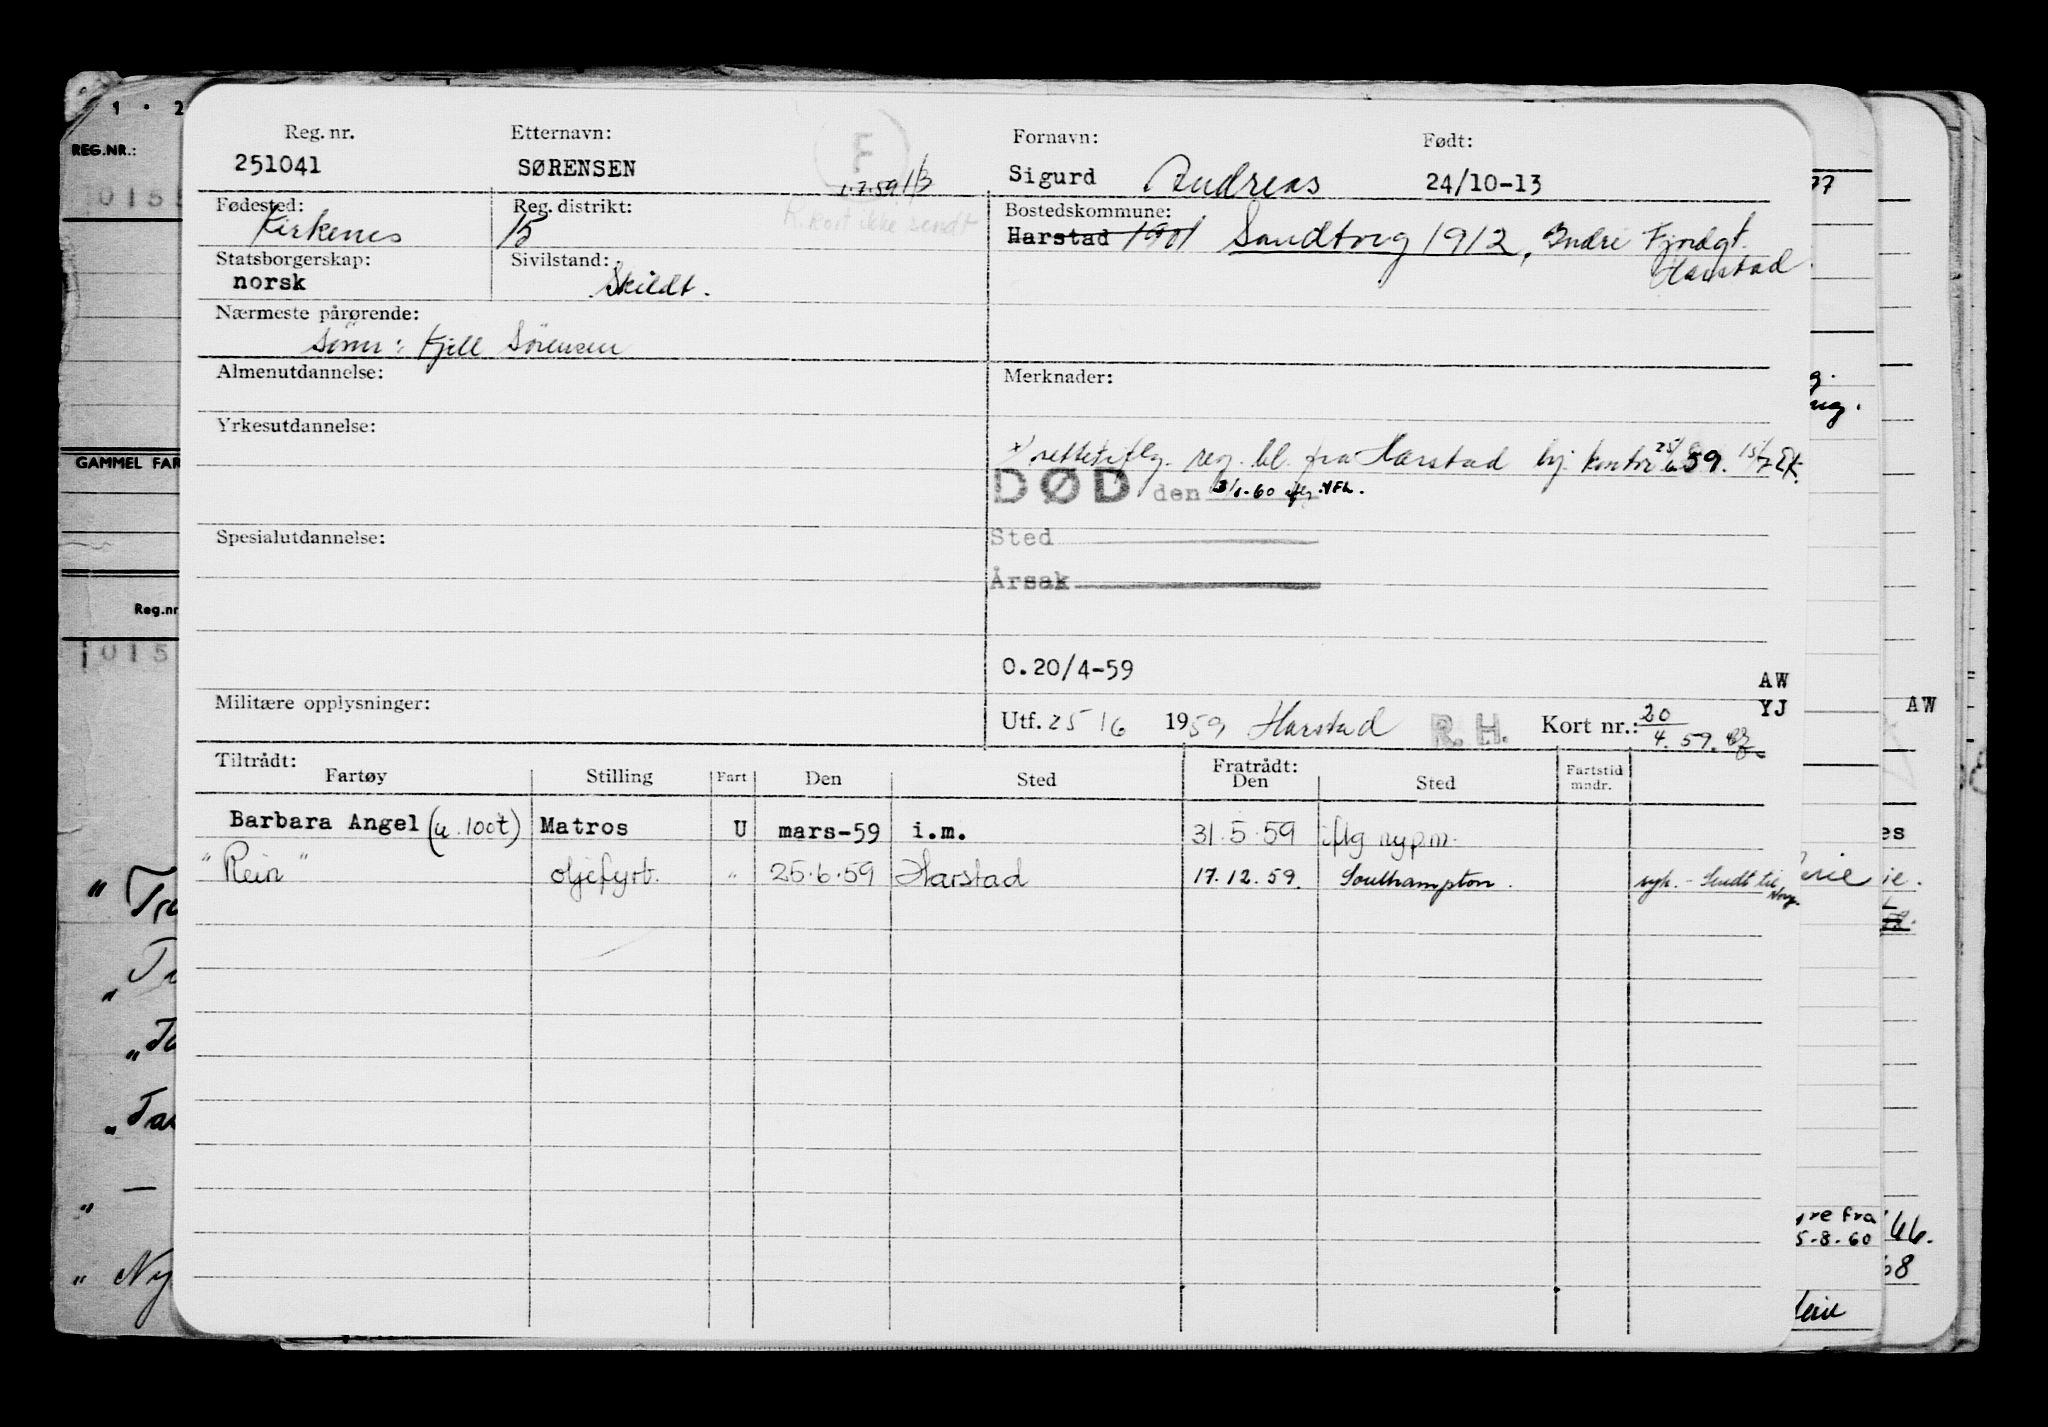 Reg. nr.
251041
Etternavn:
SØRENSEN
F
1.7.59
R.kort ikke sendt
Fornavn:
Sigurd Andreas
Født:
24/10-13
Fødested:
Kirkenes
Reg. distrikt:
15
Bostedskommune:
Harstad 1901 Sandtorg 1912, Indre Fjordgt.
Harstad
Statsborgerskap:
norsk
Sivilstand:
Skildt.
Nærmeste pårørende:
Sønn: Kjell Sørensen
Almenutdannelse:
Merknader:
Yrkesutdannelse:
rettet iflg. reg. bl. fra Harstad kontor 25/6 59.
DØD den 3/1-60 iflg. YFL.
Spesialutdannelse:
Sted
Årsak
O.20/4-59
AW
YJ
Militære opplysninger:
Utf. 25/6 1959 Harstad R.H. Kort nr.: 20/4.59.
Tiltrådt:
Fartøy Stilling Fart Den Sted
Fratrådt:
Den Sted
Fartstid mndr.
Barbara Angel (u.100t) Matros U mars-59 i.m. 31.5.59 iflg
"Rein" oljefyrb. " 25.6.59 Harstad 17.12.59. Southampton. syk. - Sendt til Norg.
1 · 2
REG.NR.:
GAMMEL FAR
Reg.nr
015
AW
yre fra
5-8-60
66.
68